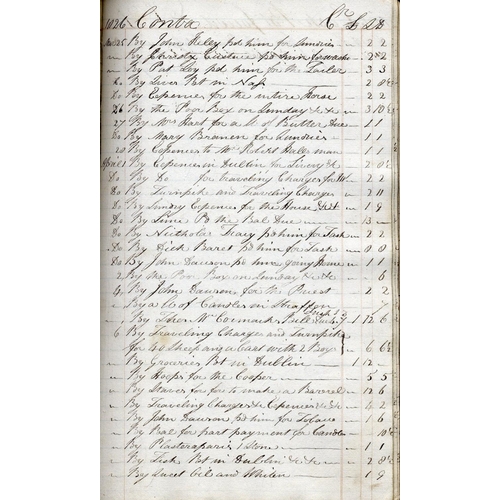 1826 Contra Cr £ s d
25 By John Keley pd him for Sundries 2 2
" By Christy Eustace pd him for 2
" By Pat Loy pd him for the Tailor 3 3
Do By Bt in Naas 2
Do By Expences for the entire Horse 2 2
26 By the Poor Box on Sunday &c &c 3 10
27 By Mrs Hart for a lb of Butter Due 1 1
Do By Mary Branen for Sundries 1 1
By Expences to Mr Robert Hall man 1 1
April 1 By Expences in Dublin for Livery &c 2
Do By Do for traveling Charges for 2 2
Do By Turnpike and Traveling Charges 2 11
Do By Sundry Expences for the House &c &c 1 9
Do By Lime Pd the Bal Due 13 "
Do By Nicholas Tracy pd him for Task 2 2
Do By Dick Baret pd him for Task
Do By John Dawson pd him going Home 1 1
2 By the Poor Box on Sunday &c &c " 6
4 By John Dawson for the Priest 2 2
By a lb of Candles in Straffan
" By Thos McCormack Bull 1 12 6
6 By Traveling Charges and Turnpike
for 40 Sheep and a Cart with 2 Boys 6
" By Groceries Bt in Dublin 1 12
" By Hoops for the Cooper 5 5
" By Staves for to make a Barrel 12 6
" By Traveling Charges & Expences &c 4 2
" By John Dawson pd him for Tobaco 1 6
" By Bal for part payment for Candles 10
" By Plasteraparis 1 Stone 1 1
" By Fish Bt in Dublin &c &c 2 8
" By Sweet Oil and Whiten 1 9